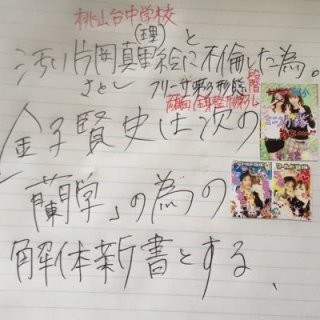 桃山台中学校
(理)
汚い片岡真理絵と不倫した為。
さとし
フリーザ第3形態
金子賢史は次の
「蘭学」の為の
解体新書とする、